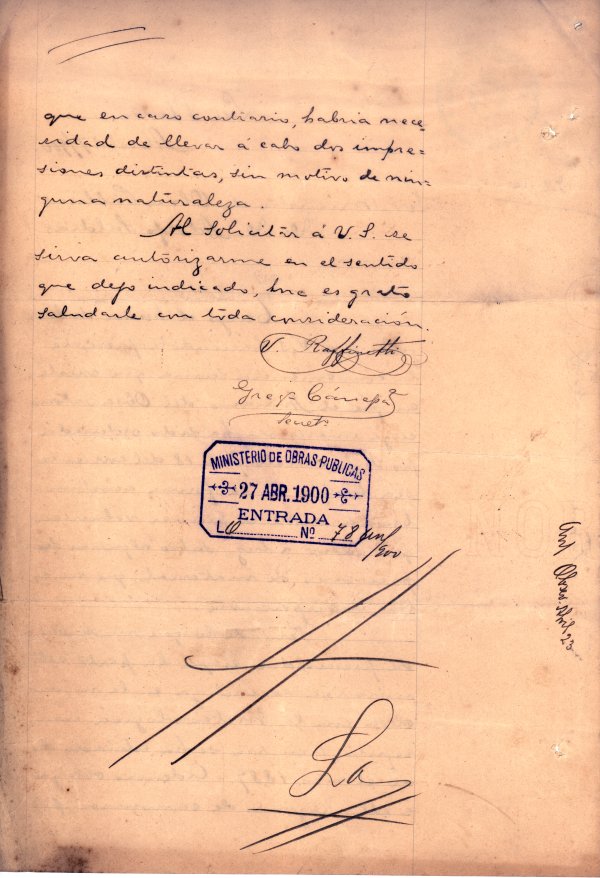 que en caso contrario, habria nece=
sidad de llevar á cabo dos impre=
siones distintas, sin motivo de nin=
guna naturaleza.
Al solicitar á V. S. se
sirva autorizarme en el sentido
que dejo indicado, me es grato
saludarle con toda consideración.
V. Raffinetti
Gregº Cánepa
Secretº
MINISTERIO DE OBRAS PUBLICAS
27 ABR. 1900
ENTRADA
LO Nº 78
900
La